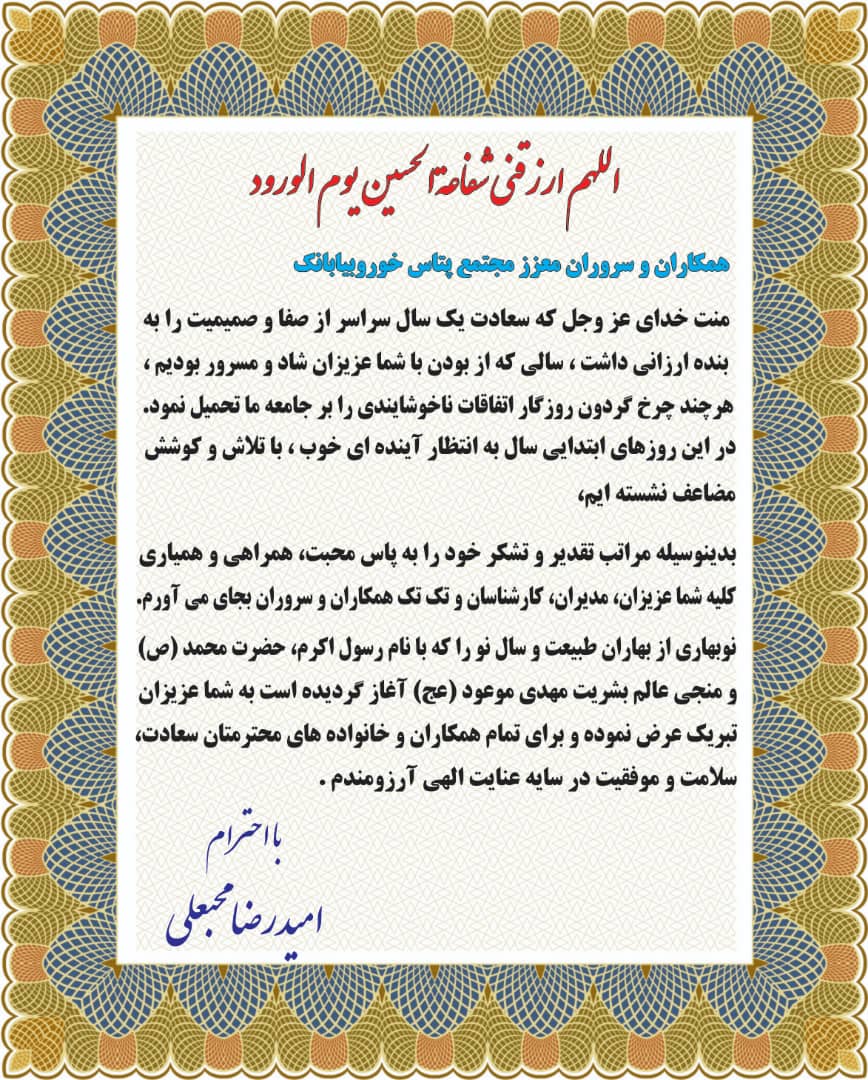 اللهم ارزقنی شفاعة الحسین یوم الورود
همکاران و سروران معزز مجتمع پتاس خوروبیابانک
منت خدای عز وجل که سعادت یک سال سراسر از صفا و صمیمیت را به
بنده ارزانی داشت ، سالی که از بودن با شما عزیزان شاد و مسرور بودیم ،
هرچند چرخ گردون روزگار اتفاقات ناخوشایندی را بر جامعه ما تحمیل نمود.
در این روزهای ابتدایی سال به انتظار آینده ای خوب ، با تلاش و کوشش
مضاعف نشسته ایم،
بدینوسیله مراتب تقدیر و تشکر خود را به پاس محبت، همراهی و همیاری
کلیه شما عزیزان، مدیران، کارشناسان و تک تک همکاران و سروران بجای می آورم.
نوبهاری از بهاران طبیعت و سال نو را که با نام رسول اکرم، حضرت محمد (ص)
و منجی عالم بشریت مهدی موعود (عج) آغاز گردیده است به شما عزیزان
تبریک عرض نموده و برای تمام همکاران و خانواده های محترمتان سعادت،
سلامت و موفقیت در سایه عنایت الهی آرزومندم .
با احترام
امیدرضا محبعلی